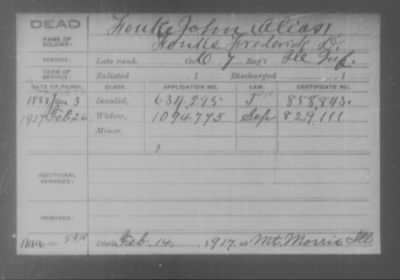 DEAD
NAME OF SOLDIER:
Fonke, John Alias
Fonke, Frederick D.
SERVICE: Late rank, Co. C, 7 Reg't Ill Inf.
TERM OF SERVICE: Enlisted 1 Discharged 1
DATE OF FILING. CLASS. APPLICATION NO. LAW. CERTIFICATE NO.
1888 Jan 3 Invalid, 634,295 J 858,843.
1917 Feb 26 Widow, 1094,775 Sep 829,111
Minor,
ADDITIONAL SERVICES:
REMARKS:
Died Feb. 14, 1917, at Mt. Morris Ill